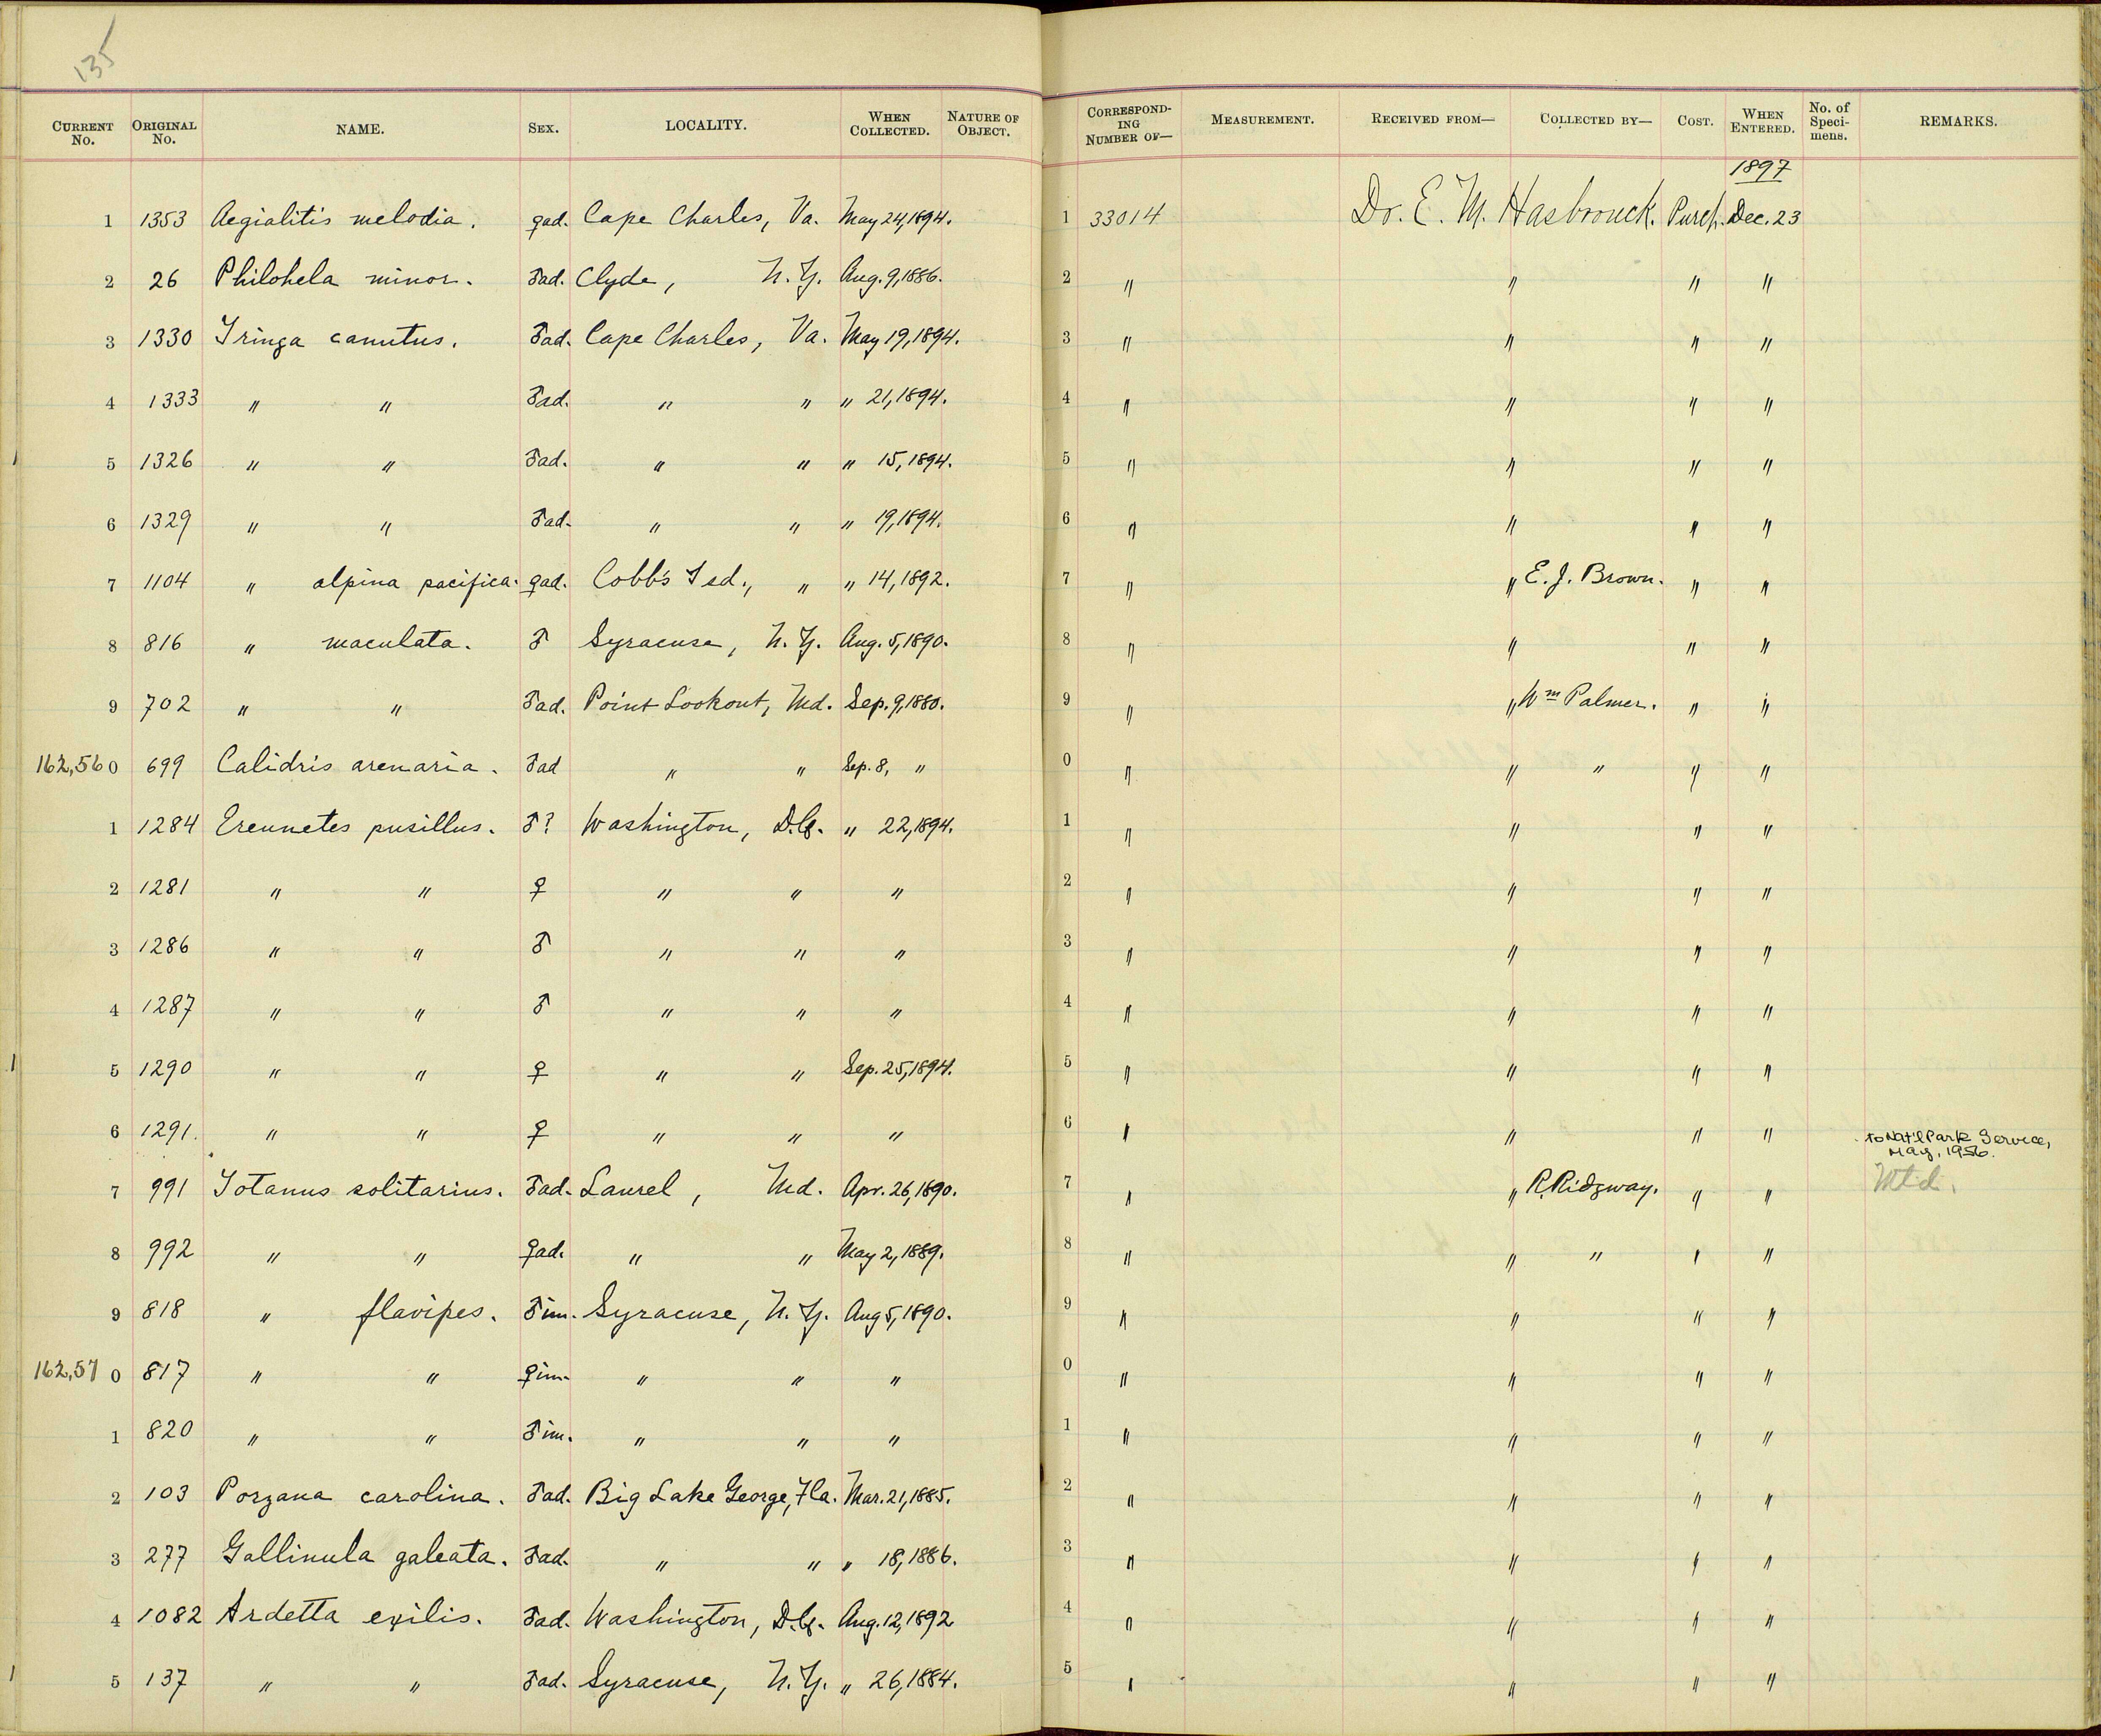 135
CURRENT No. ORIGINAL No. NAME. SEX. LOCALITY. WHEN COLLECTED. NATURE OF OBJECT. CORRESPONDING NUMBER OF— MEASUREMENT. RECEIVED FROM— COLLECTED BY— COST. WHEN ENTERED. No. of Specimens. REMARKS.
1897
1 1353 Aegialitis melodia. ♀ad. Cape Charles, Va. May 24, 1894. 1 33014 Dr. E. M. Hasbrouck. Purch. Dec. 23
2 26 Philohela minor. ♂ad. Clyde, N. Y. Aug. 9, 1886. 2 " " " "
3 1330 Tringa canutus. ♂ad. Cape Charles, Va. May 19, 1894. 3 " " " "
4 1333 " " ♂ad. " " " 21, 1894. 4 " " " "
5 1326 " " ♂ad. " " " 15, 1894. 5 " " " "
6 1329 " " ♂ad. " " " 19, 1894. 6 " " " "
7 1104 " alpina pacifica. ♀ad. Cobb's Isd., " " 14, 1892. 7 " " E. J. Brown. " "
8 816 " maculata. ♂ Syracuse, N. Y. Aug. 5, 1890. 8 " " " "
9 702 " " ♂ad. Point Lookout, Md. Sep. 9, 1880. 9 " " Wm Palmer. " "
162,560 699 Calidris arenaria. ♂ad " " Sep. 8, " 0 " " " " "
1 1284 Ereunetes pusillus. ♂? Washington, D.C. " 22, 1894. 1 " " " "
2 1281 " " ♀ " " " 2 " " " "
3 1286 " " ♂ " " " 3 " " " "
4 1287 " " ♂ " " " 4 " " " "
5 1290 " " ♀ " " Sep. 25, 1894. 5 " " " "
6 1291. " " ♀ " " " 6 " " " "
to Nat'l Park Service,
May, 1956.
7 991 Totanus solitarius. ♂ad. Laurel, Md. Apr. 26, 1890. 7 " " R. Ridgway. " " Mtd.
8 992 " " ♀ad. " " May 2, 1889. 8 " " " " "
9 818 " flavipes. ♂im. Syracuse, N. Y. Aug 5, 1890. 9 " " " "
162,570 817 " " ♀im. " " " 0 " " " "
1 820 " " ♂im. " " " 1 " " " "
2 103 Porzana carolina. ♂ad. Big Lake George, Fla. Mar. 21, 1885. 2 " " " "
3 277 Gallinula galeata. ♂ad. " " " 18, 1886. 3 " " " "
4 1082 Ardetta exilis. ♂ad. Washington, D.C. Aug. 12, 1892 4 " " " "
5 137 " " ♂ad. Syracuse, N. Y. " 26, 1884. 5 " " " "